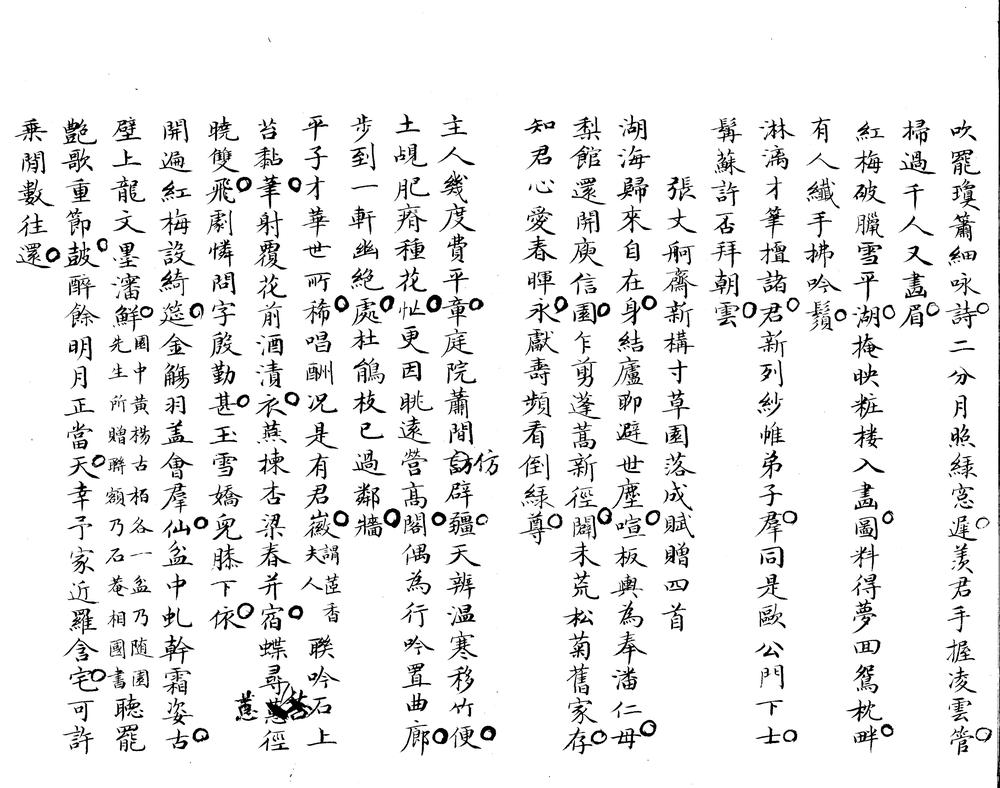 吹罷瓊簫細咏詩二分月照綠窓遲羨君手握凌雲管
掃過千人又畫眉
紅梅破臘雪平湖掩映粧楼入畫圖料得夢囬鴛枕畔
有人纖手拂吟鬚
淋漓才筆擅諸君新列紗帷弟子羣同是歐公門下士
髯蘇許否拜朝雲
張丈舸齋新構寸草園落成賦贈四首
湖海歸來自在身結廬聊避世塵喧板輿為奉潘仁母
梨館還開庾信園乍剪蓬蒿新徑闢未荒松菊舊家存
知君心愛春暉永獻壽頻看倒綠尊
主人幾度費平章庭院蕭閒仿辟疆天辨溫寒移竹便
土覘肥瘠種花忙更因眺遠營高閣偶為行吟置曲廊
步到一軒幽絕處杜鵑枝已過鄰牆
平子才華世所稀唱酬况是有君徽謂茝香夫人聯吟石上
苔黏筆射覆花前酒漬衣燕棟杏梁春并宿蝶尋蕙徑
曉雙飛劇憐問字殷勤甚玉雪嬌兒膝下依
開遍紅梅設綺筵金觴羽蓋會羣仙盆中虬幹霜姿古
壁上龍文墨瀋鮮園中黃楊古栢各一盆乃随園先生所贈聯額乃石菴相國書聽罷
艷歌重節鼓醉餘明月正當天幸予家近羅含宅可許
乘閒數往還